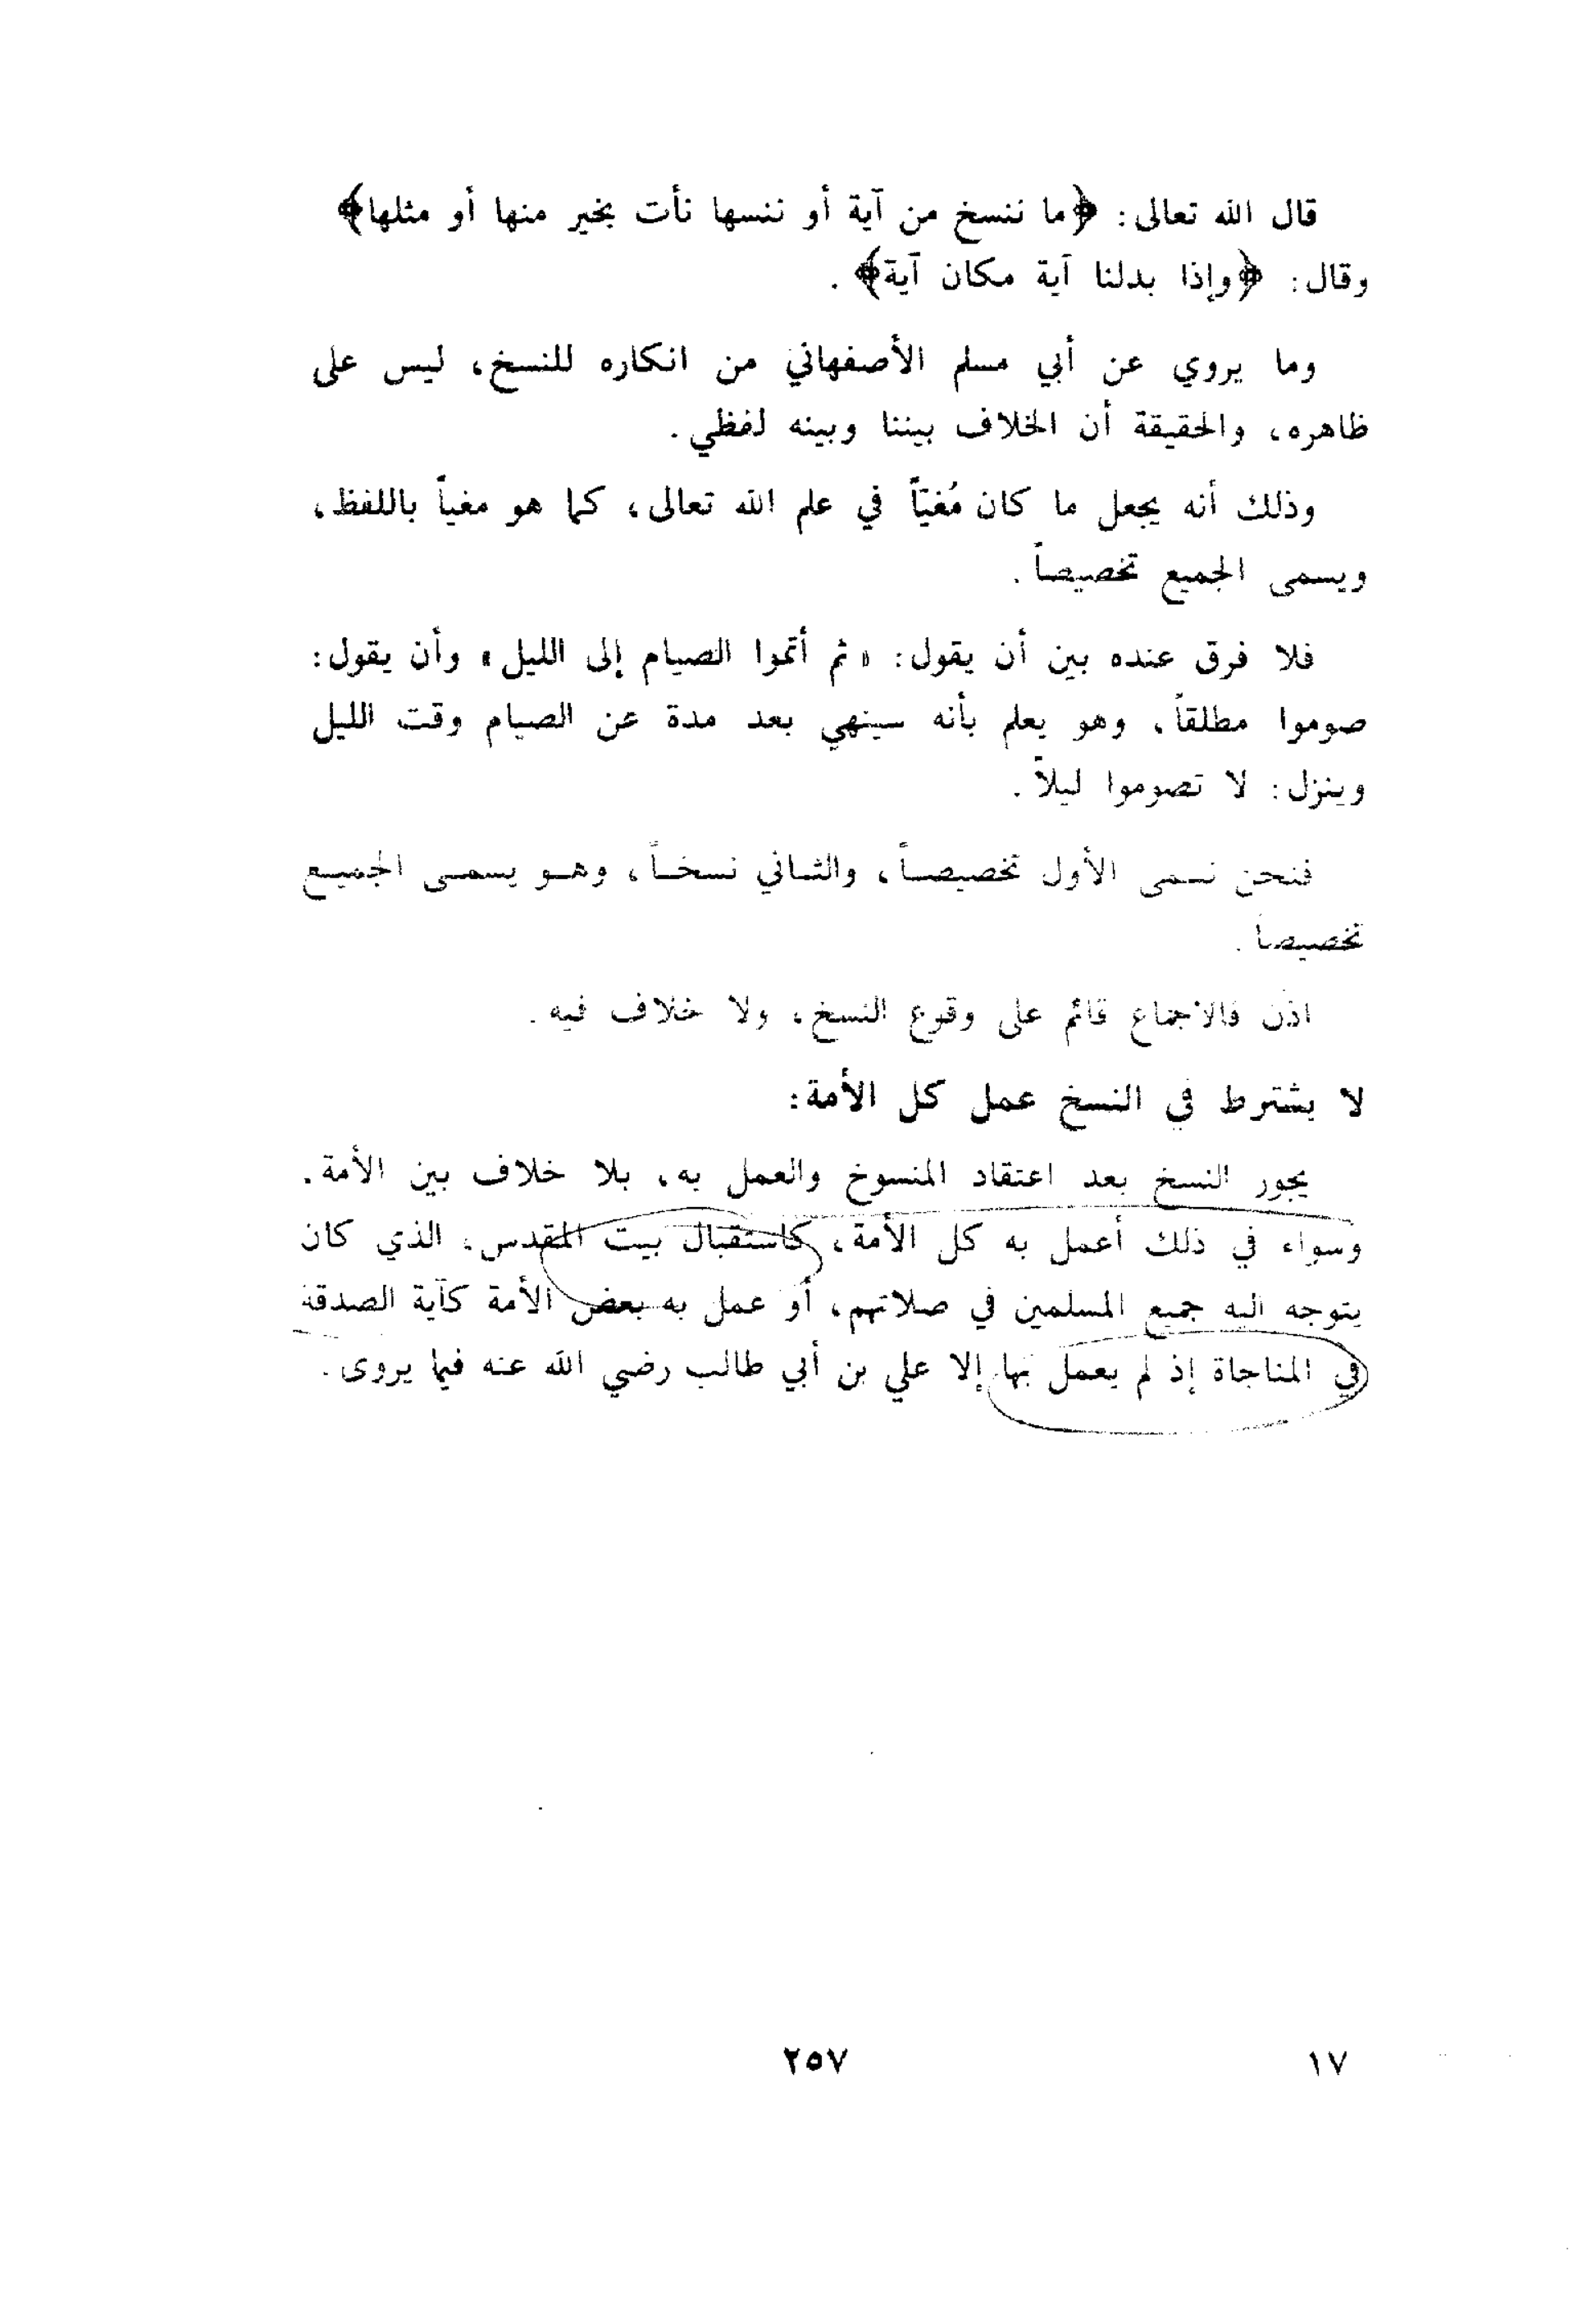 قال الله تعالى: ﴿ما ننسخ من آية أو ننسها نأت بخير منها أو مثلها﴾
وقال: ﴿وإذا بدلنا آية مكان آية﴾.
وما يروي عن أبي مسلم الأصفهاني من انكاره للنسخ، ليس على
ظاهره، والحقيقة أن الخلاف بيننا وبينه لفظي.
وذلك أنه يجعل ما كان مُغيّاً في علم الله تعالى، كما هو مغياً باللفظ،
ويسمى الجميع تخصيصاً.
فلا فرق عنده بين أن يقول: «ثم أتموا الصيام إلى الليل» وأن يقول:
صوموا مطلقاً، وهو يعلم بأنه سينهي بعد مدة عن الصيام وقت الليل
وينزل: لا تصوموا ليلاً.
فنحن نسمى الأول تخصيصاً، والثاني نسخاً، وهو يسمى الجميع
تخصيصاً.
اذن فالاجماع قائم على وقوع النسخ، ولا خلاف فيه.
لا يشترط في النسخ عمل كل الأمة:
يجوز النسخ بعد اعتقاد المنسوخ والعمل به، بلا خلاف بين الأمة.
وسواء في ذلك أعمل به كل الأمة، كاستقبال بيت المقدس، الذي كان
يتوجه اليه جميع المسلمين في صلاتهم، أو عمل به بعض الأمة كآية الصدقة
في المناجاة إذ لم يعمل بها إلا علي بن أبي طالب رضي الله عنه فيما يروى.
١٧ ٢٥٧